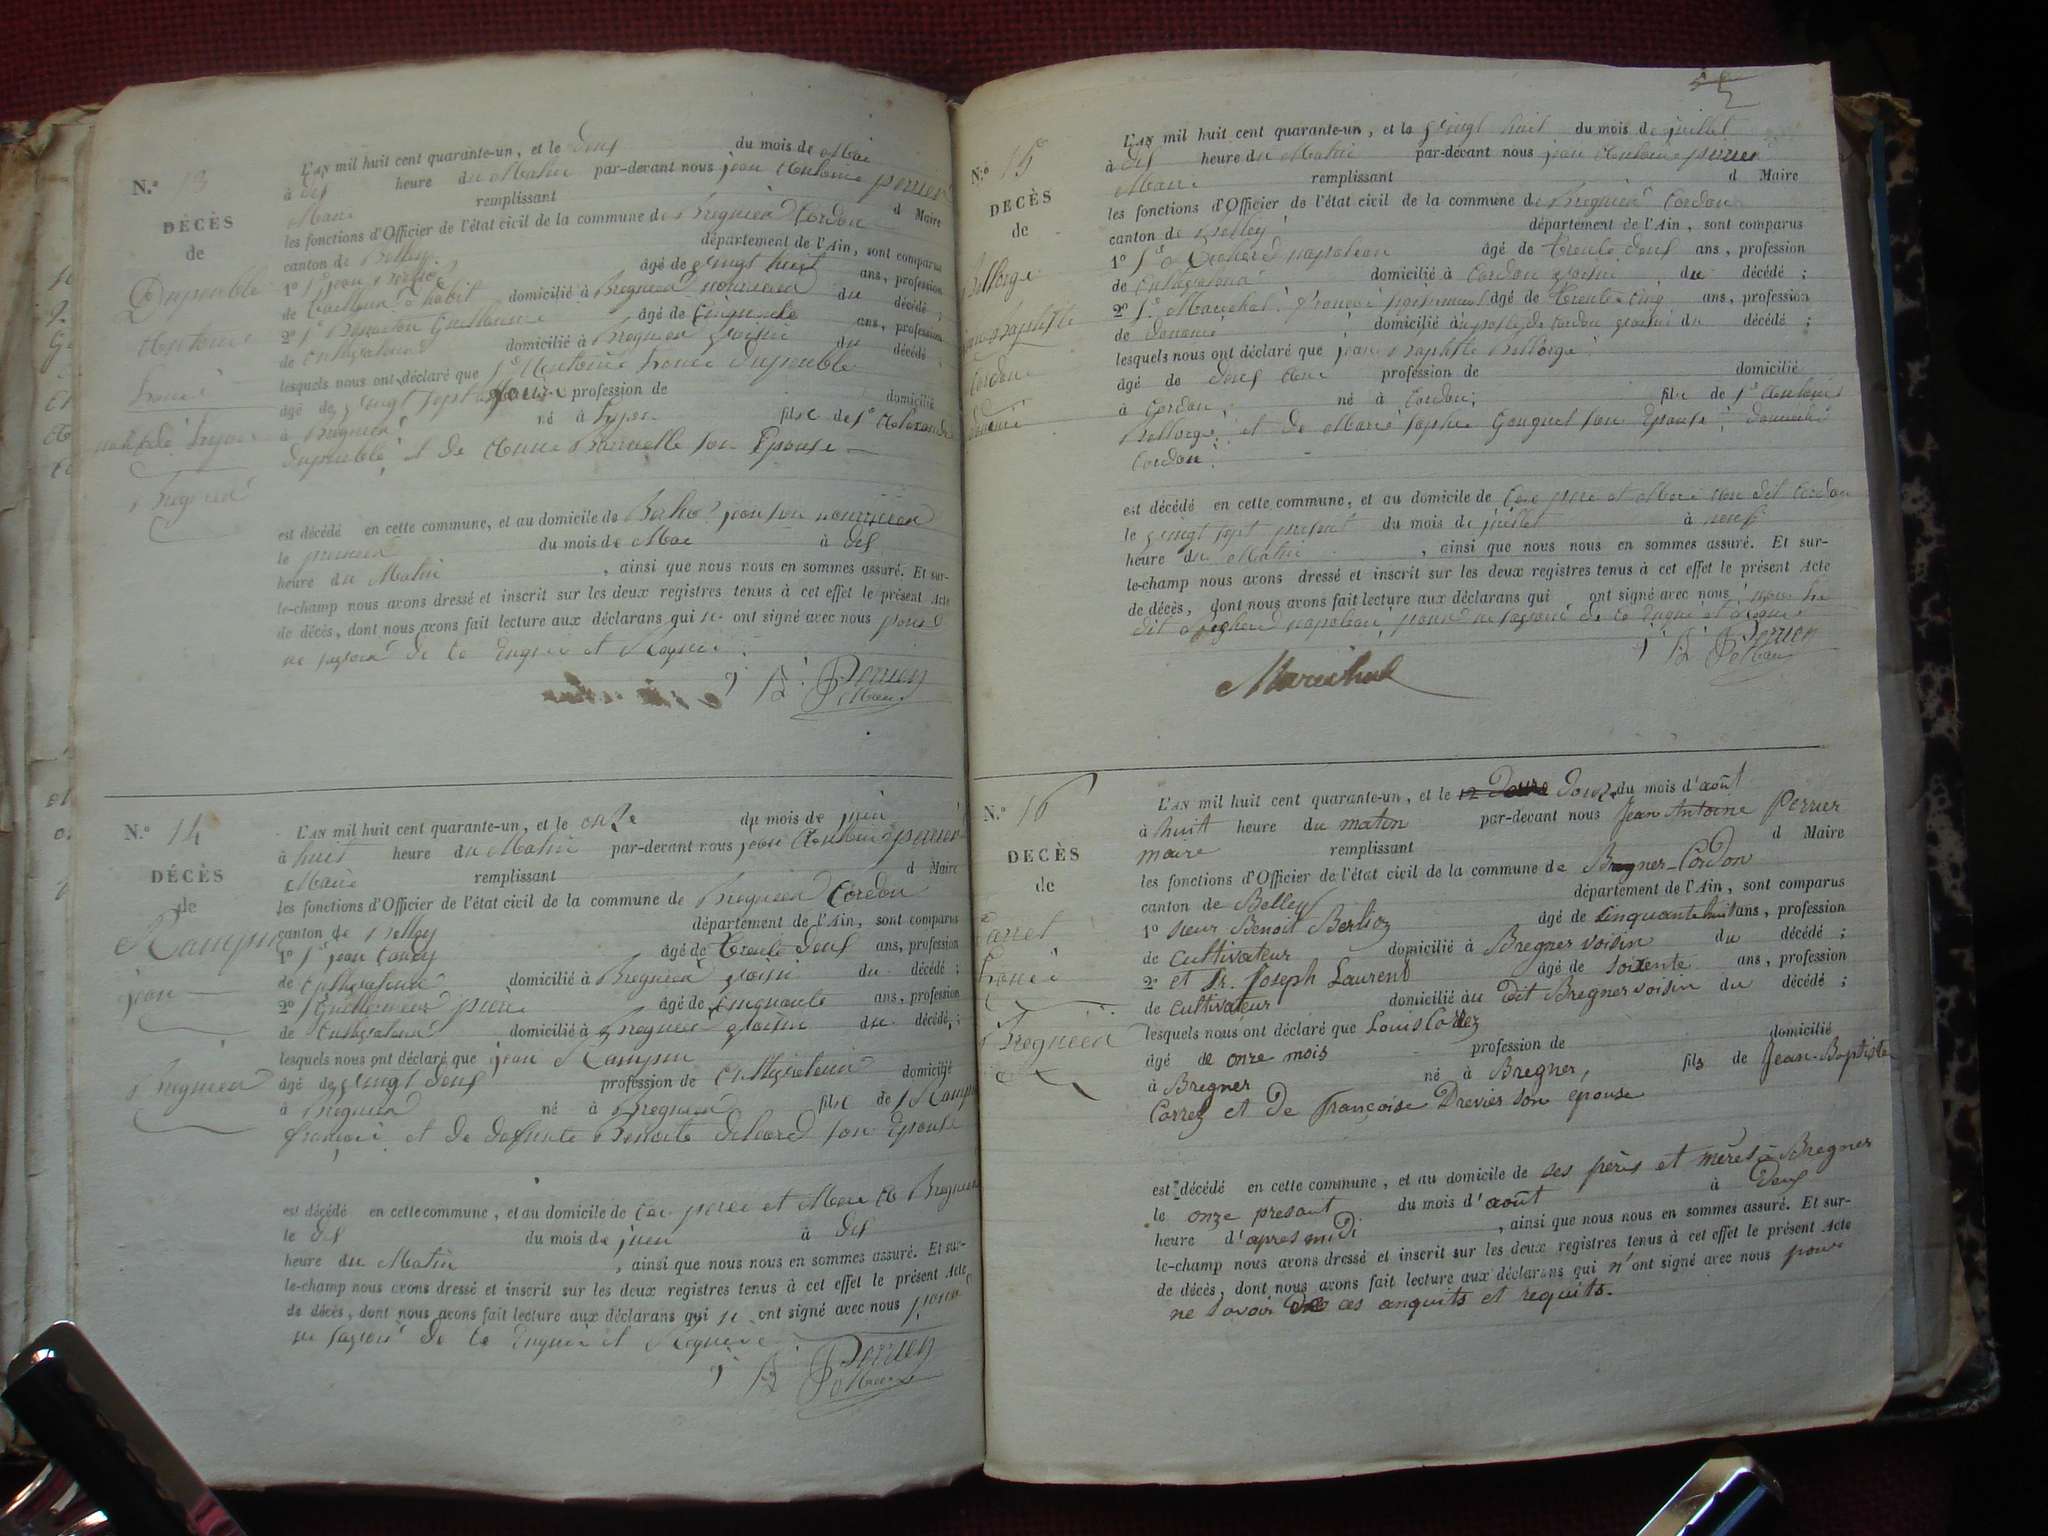 N.o 13
DÉCÈS
de
Dupeuble
Antoine
L'AN mil huit cent quarante-un, et le deux du mois de Mai
à dix heure du Matin par-devant nous jean Antoine perrier
Maire remplissant d Maire
les fonctions d'Officier de l'état civil de la commune de Bregnier Cordon
canton de Belley département de l'Ain, sont comparus
1o Sr jean âgé de vingt huit ans, profession
de tailleur d habit domicilié à Bregnier nourricier du décédé ;
2o Sr Guillaume âgé de Cinquante ans, profession
de Cultivateur domicilié à Bregnier voisin du décédé
lesquels nous ont déclaré que Sr Antoine Dupeuble
âgé de vingt sept jours profession de domicilié
à Bregnier né à Lyon fils de Sr Alexandre
Dupeuble et de Anne son Epouse
est décédé en cette commune, et au domicile de jean son nourricier
le premier du mois de Mai à dix
heure du Matin , ainsi que nous nous en sommes assuré. Et sur-
le-champ nous avons dressé et inscrit sur les deux registres tenus à cet effet le présent Acte
de décès, dont nous avons fait lecture aux déclarans qui ont signé avec nous pour
ne savoir de ce Enquis et Requis
Perrier
Maire
N.o 14
DÉCÈS
de
jean
Bregnier
L'AN mil huit cent quarante-un, et le onze du mois de juin
à huit heure du Matin par-devant nous jean Antoine perrier
Maire remplissant d Maire
les fonctions d'Officier de l'état civil de la commune de Bregnier Cordon
canton de Belley département de l'Ain, sont comparus
1o Sr jean âgé de trente deux ans, profession
de Cultivateur domicilié à Bregnier voisin du décédé ;
2o âgé de Cinquante ans, profession
de Cultivateur domicilié à Bregnier voisin du décédé ;
lesquels nous ont déclaré que jean
âgé de vingt deux profession de Cultivateur domicilié
à Bregnier né à Bregnier fils de
françois et de defunte Benoite son Epouse
est décédé en cette commune, et au domicile de père et Mère à Bregnier
le dix du mois de juin à dix
heure du Matin , ainsi que nous nous en sommes assuré. Et sur-
le-champ nous avons dressé et inscrit sur les deux registres tenus à cet effet le présent Acte
de décès, dont nous avons fait lecture aux déclarans qui ont signé avec nous pour
ne savoir de ce Enquis et Requis
Perrier
Maire
N.o 15
DÉCÈS
de
jean baptiste
Cordon
L'AN mil huit cent quarante-un, et le vingt huit du mois de juillet
à dix heure du Matin par-devant nous jean Antoine perrier
Maire remplissant d Maire
les fonctions d'Officier de l'état civil de la commune de Bregnier Cordon
canton de Belley département de l'Ain, sont comparus
1o Sr napoleon âgé de trente deux ans, profession
de Cultivateur domicilié à Cordon voisin du décédé ;
2o Sr Marechal françois âgé de trente cinq ans, profession
de douanier domicilié au poste de Cordon voisin du décédé ;
lesquels nous ont déclaré que jean Baptiste
âgé de deux Ans profession de domicilié
à Cordon né à Cordon; fils de Sr Antoine
et de Marie sophie son Epouse
Cordon
est décédé en cette commune, et au domicile de père et Mère dit Cordon
le vingt sept présent du mois de juillet à neuf
heure du Matin , ainsi que nous nous en sommes assuré. Et sur-
le-champ nous avons dressé et inscrit sur les deux registres tenus à cet effet le présent Acte
de décès, dont nous avons fait lecture aux déclarans qui ont signé avec nous
dit napoleon, pour ne savoir de ce Enquis et Requis
Perrier
Maire
Marechal
N.o 16
DECÈS
de
Bregnier
L'AN mil huit cent quarante-un, et le 12 Douze Douze du mois d'août
à huit heure du matin par-devant nous Jean Antoine Perrier
maire remplissant d Maire
les fonctions d'Officier de l'état civil de la commune de Bregner-Cordon
canton de Belley département de l'Ain, sont comparus
1o sieur Benoit Berlioz âgé de Cinquantehuit ans, profession
de Cultivateur domicilié à Bregner voisin du décédé ;
2o et Sr. Joseph Laurent âgé de soixente ans, profession
de Cultivateur domicilié au Dit Bregner voisin du décédé ;
lesquels nous ont déclaré que Louis
âgé de onze mois profession de domicilié
à Bregner né à Bregner, fils de Jean-Baptiste
Carrez et De Françoise Drevier son epouse
est décédé en cette commune, et au domicile de ses pères et mères à Bregner
le onze presant du mois d'août à Deux
heure d'apres mi Di , ainsi que nous nous en sommes assuré. Et sur-
le-champ nous avons dressé et inscrit sur les deux registres tenus à cet effet le présent Acte
de décès, dont nous avons fait lecture aux déclarans qui n'ont signé avec nous pour
ne savoir ces anquits et requits.